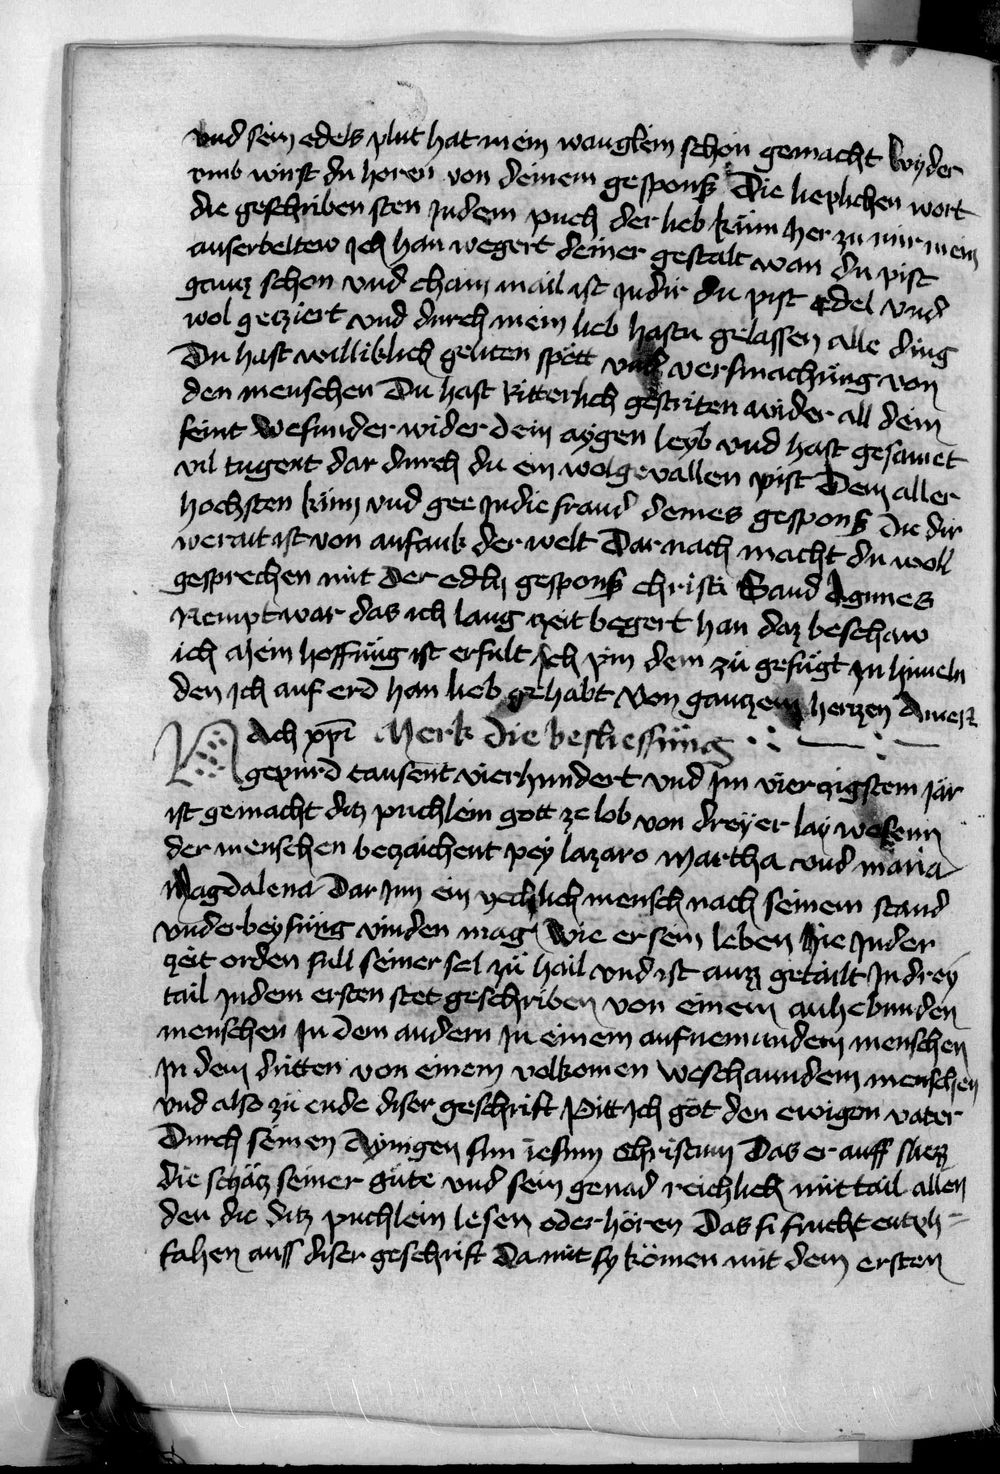 vnd sein edels plut hat mein wänglein schon gemacht wyder
vmb wirst du horen von deinem gespons Die lieplichen wort
die geschriben sten Jn dem puch der lieb kum her zu mir mein
auserbeltew Jch han wegert deiner gestalt wan du pist
gancz schon vnd chain mail ist Jn dir du pist edel vnd
wol geziert vnd durch mein lieb hastu gelassen alle ding
Du hast williklich geliten spött vnd versmachung von
den menschen Du hast Ritterlich gestriten wider all dein
feint wesunder wider dein aygen leyb vnd hast gesamet
vil tugent dar durch du ein wolgevallen pist Dem aller
hochsten küng vnd gee Jn die fraud deines gespons Die dir
werait ist von anfank der welt Dar nach macht du woll
gesprechen mit der edln gespons christi Sand Agnnes
Nempt war das ich lang zeit begert han daz beschaw
ich Mein hoffnüng ist erfult Jch pin dem zu gefugt Jn himeln
den Jch auf erd han lieb gehabt von ganczem herczen Amen
Merk die besliessüng
Nach xpi
gepurd tausent vierhundert vnd Jm vierzigstem Jar
ist gemacht ditz puchlein gott ze lob von dreyer lay wesenn
der menschen bezaichent pey lazaro Martha vnd maria
Magdalena Dar Jnn ein yechlich mensch nach seinem stand
vnderbeysung vinden mag wie er sein leben hie Jn der
zeit orden sull seiner sel zu hail vnd ist auch getailt Jn drey
tail Jn dem ersten stet geschriben von einem anhebunden
menschen Jn dem andern Jn einem aufnemundem menschen
Jn dem dritten von einem volkomen weschaundem menschen
vnd also zu ende diser geschrift Pitt Jch got den ewigen vater
Durch seinen Aynigen sun iesum Christum Das er auff sliezz
die schätz seiner güte vnd sein genad reichlich mittail allen
den die ditz puchlein lesen oder hören Das si frucht entph=
fahen auss diser geschrift Da mit sy kömen mit dem ersten